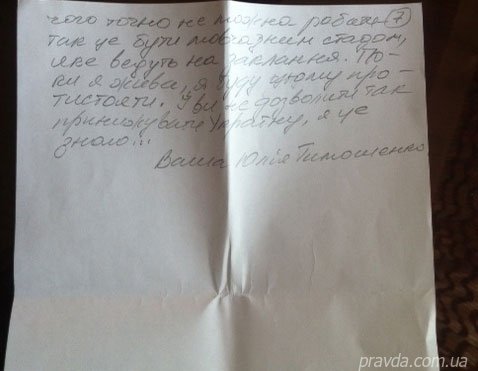 чого точно не можна робити 7
так це бути мовчазним стадом,
яке ведуть на заклання. По-
ки я жива, я буду цьому про-
тистояти. І ви не дозволите так
принижувати Україну, я це
знаю...
Ваша Юлія Тимошенко
pravda.com.ua